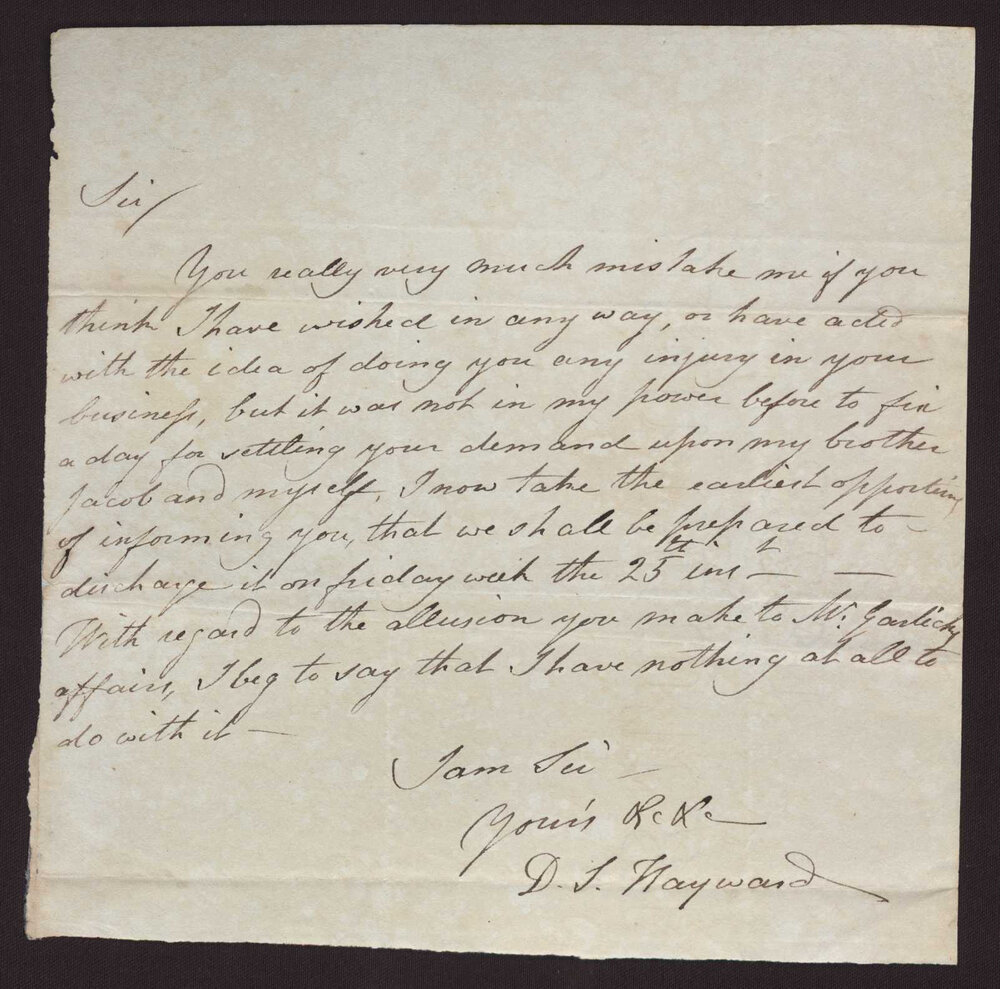 Sir/
You really very much mistake me if you
think I have wished in any way, or have acted
with the idea of doing you any injury in your
business, but it was not in my power before to fix
a day for settling your demand upon my brother
Jacob and myself, I now take the earliest
of informing you, that we shall be prepared to –
discharge it on friday week the 25th inst — —
With regard to the allusion you make to Mr. Garlicks
affairs, I beg to say that I have nothing at all to
do with it —
I am Sir —
Your's &c &c —
D. S. Hayward